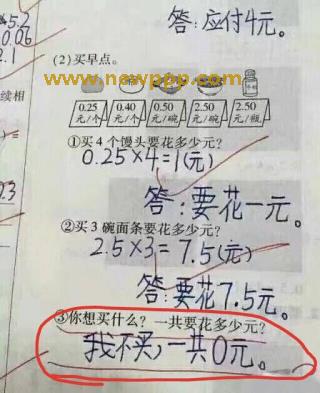 答:应付4元。
5.2
0.06
2.1
(2)买早点。
www.newppp.com
续相
0.25 0.40 0.50 2.50 2.50
元/个 元/个 元/碗 元/碗 元/瓶
①买4个馒头要花多少元?
0.25×4=1(元)
答:要花一元。
0.3
②买3碗面条要花多少元?
2.5×3=7.5(元)
答:要花7.5元。
③你想买什么?一共要花多少元?
我不买,一共0元。